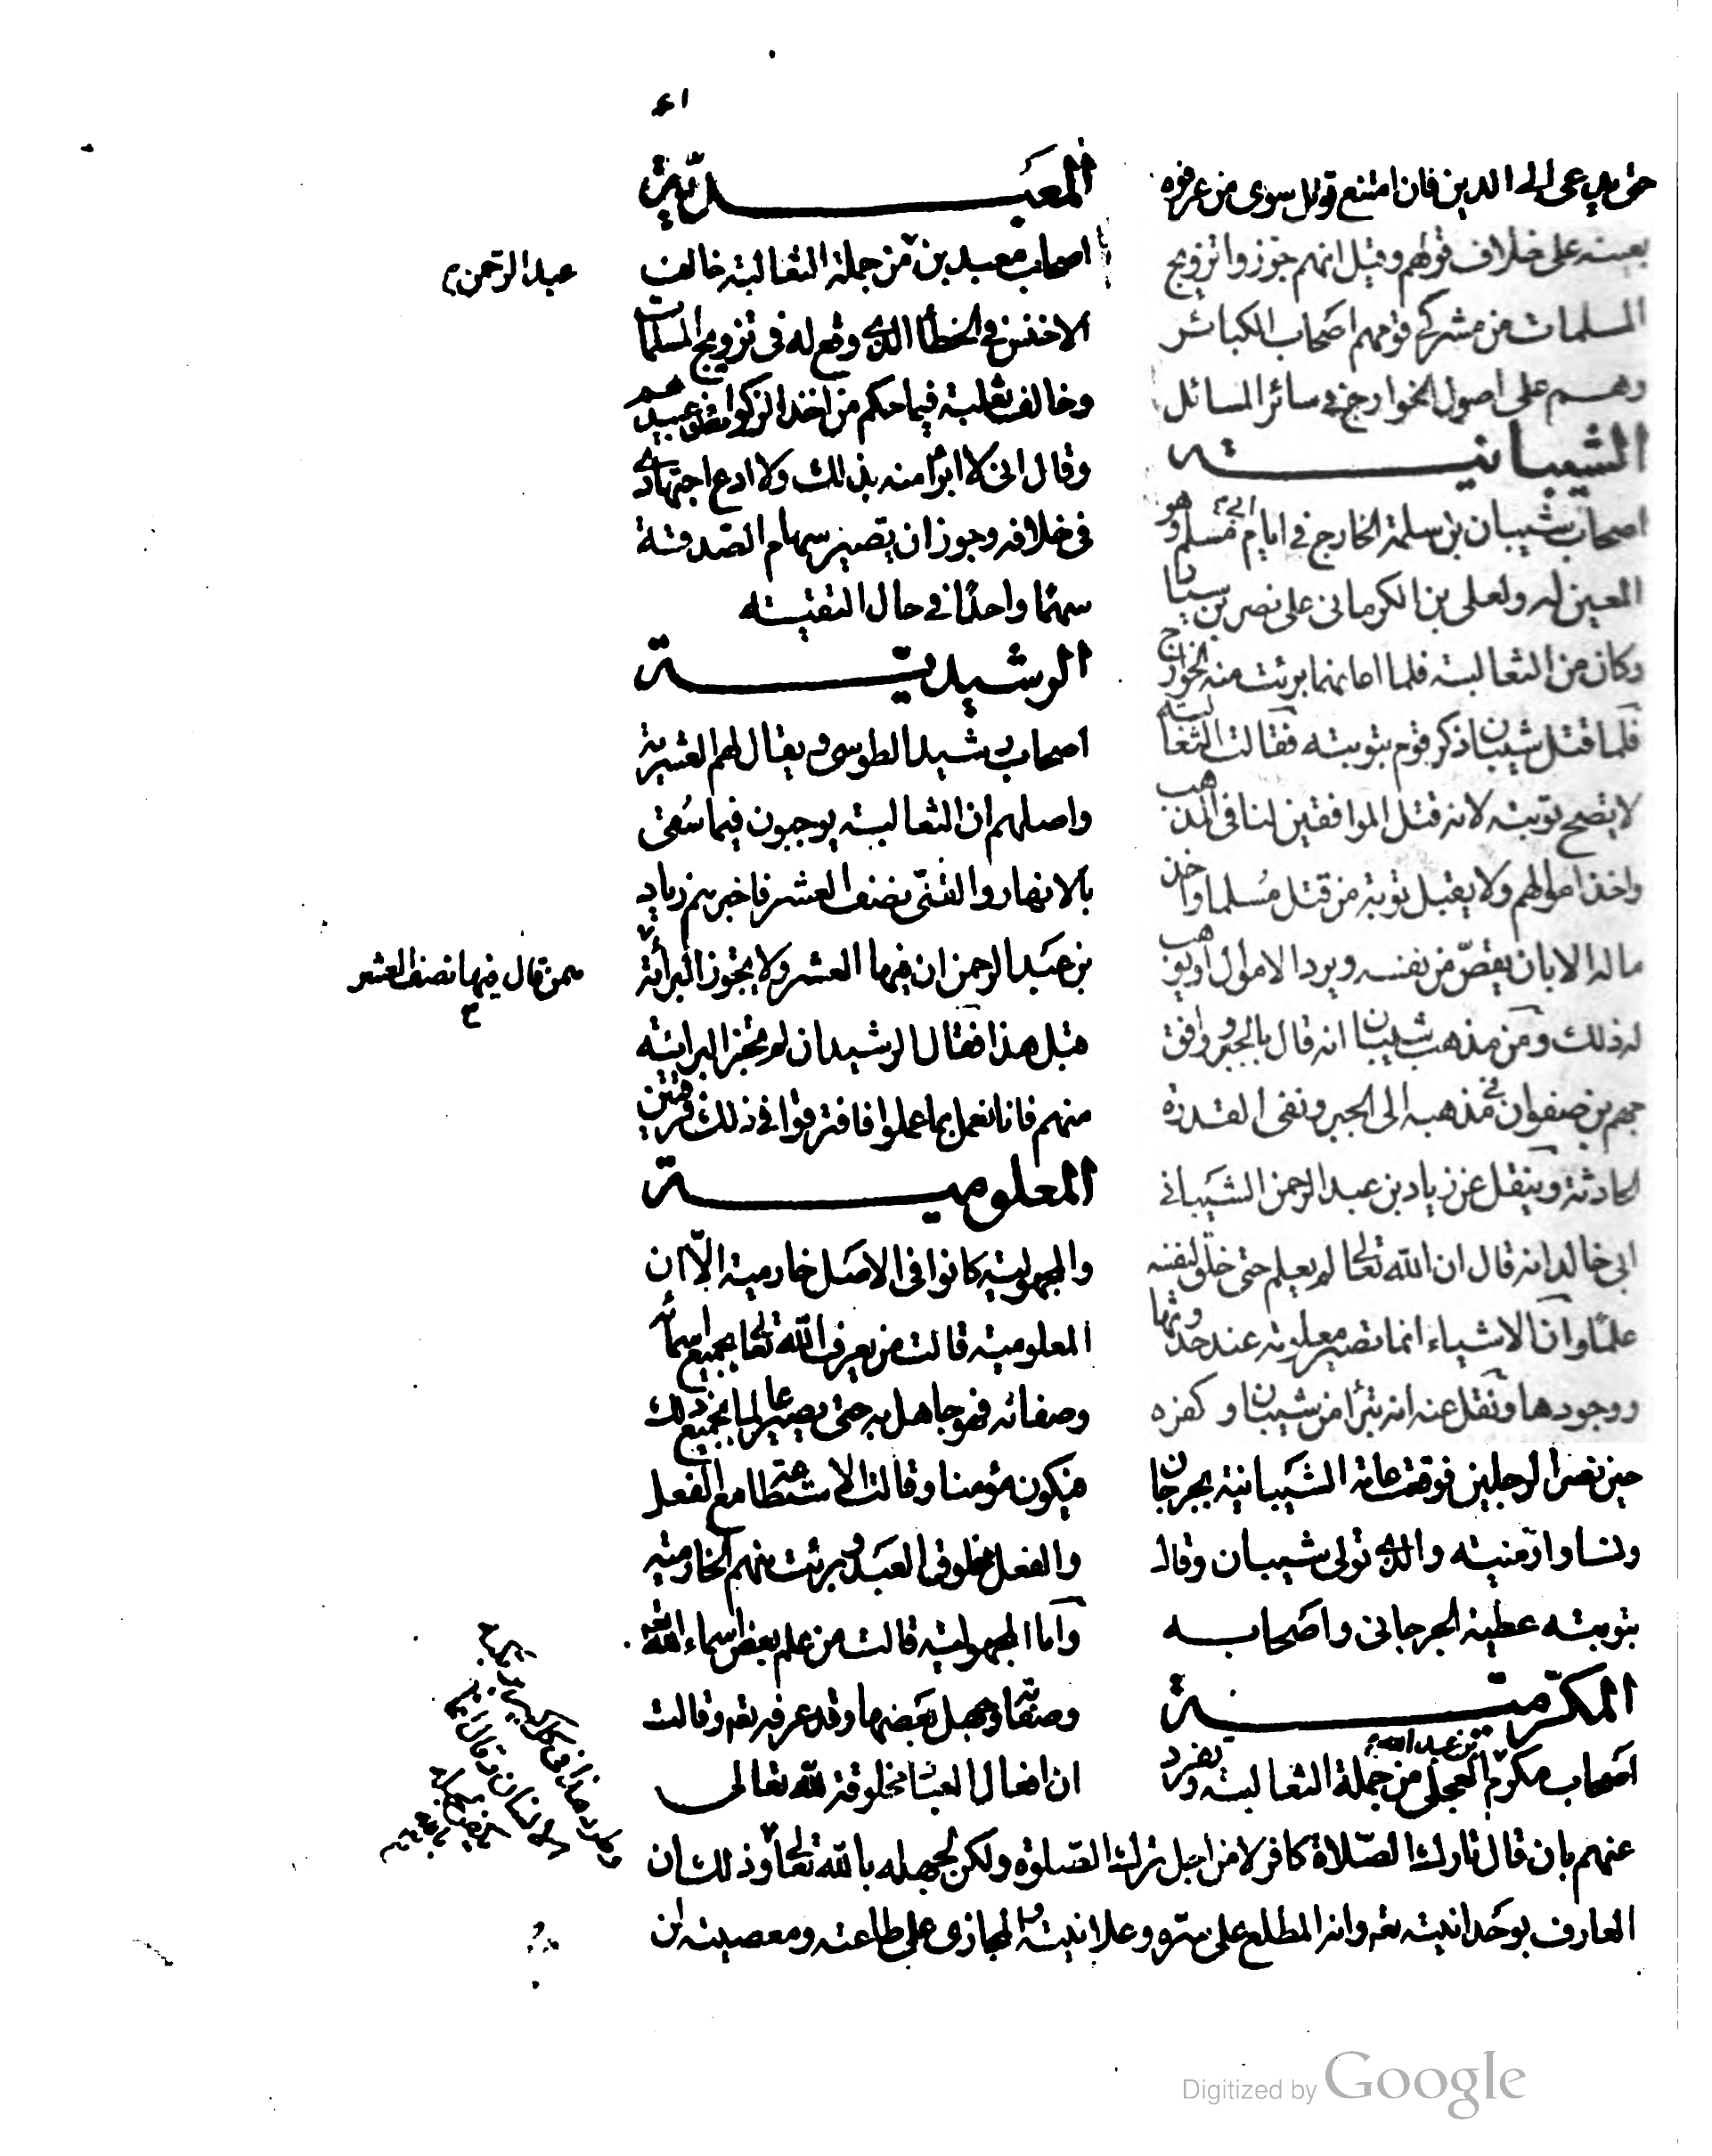 ٤١
حتى يدعى الى الدين فان امتنع قوتل سوى من عرفوه
بعينه على خلاف قولهم وقيل انهم جوزوا تزويج
المسلمات من مشركي قومهم اصحاب الكبائر
وهم على اصول الخوارج في سائر المسائل
الشيبانية
اصحاب شيبان بن سلمة الخارج في ايام ابي مسلم وهو
المعين له ولعلي بن الكرماني على نصر بن سيار
وكان من الثعالبة فلما اعانهما برئت منه الخوارج
فلما قتل شيبان ذكر قوم بتوبته فقالت الثعالبة
لا يصح توبته لانه قتل الموافقين لنا في المذهب
واخذ اموالهم ولا يقبل توبة من قتل مسلما واخذ
ماله الا بان يقصّ من نفسه ويرد الاموال او يوهب
له ذلك ومن مذهب شيبان انه قال بالجبر ووافق
جهم بن صفوان في مذهبه الى الجبر ونفى القدرة
الحادثة وينقل عن زياد بن عبد الرحمن الشيباني
ابي خالد انه قال ان الله تعالى لم يعلم حتى خلق لنفسه
علما وان الاشياء انما تصير معلومة عند حدوثها
ووجودها ونقل عنه انه تبرأ من شيبان وكفره
حين نصر الرجلين فوقعت عامة الشيبانية بجرجان
ونسا وارمنية والذي تولى شيبان وقال
بتوبته عطية الجرجاني واصحابه
المكرّمية
اصحاب مكرم بن عبد الله العجلي من جملة الثعالبة وتفرد
المعبدية
اصحاب معبد بن من جملة الثعالبة خالف
الاخنس في الخطأ الذي وقع له في تزويج المسلمات
وخالف ثعلبة فيما حكم من اخذ الزكوة من عبيدهم
وقال اني لا ابرأ منه بذلك ولا ادع اجتهادي
في خلافه وجوز ان يصير سهام الصدقة
سهما واحدا في حال التقية
عبد الرحمن
الرشيدية
اصحاب رشيد الطوسي ويقال لهم العشرية
واصلهم ان الثعالبة يوجبون فيما سُقي
بالانهار والقنى نصف العشر فاخبرهم زياد
بن عبد الرحمن ان فيها العشر ولا يجوز البرأة
ممن قال فيها نصف العشر
قبل هذا فقال الرشيد ان لم يجز البراءة
منهم فانا نعمل بما عملوا فافترقوا في ذلك فرقتين
المعلومية
والمجهولية كانوا في الاصل خازمية الّا ان
المعلومية قالت من لم يعرف الله تعالى بجميع اسمائه
وصفاته فهو جاهل به حتى يصير عالما بجميع ذلك
فيكون مؤمنا وقالت الاستطاعة مع الفعل
والفعل مخلوق العبد وبرئت منهم الخازمية
واما المجهولية قالت من علم بعض اسماء الله
وصفاته وجهل بعضها وقد عرفه تعالى وقالت
ان افعال العباد مخلوقة لله تعالى
عنهم بان قال تارك الصّلاة كافر لا من اجل ترك الصّلوة ولكن لجهله بالله تعالى وذلك ان
العارف بوحدانيته تعالى وانه المطلع على سره وعلانيته المجازي على طاعته ومعصيته لن
Digitized by Google